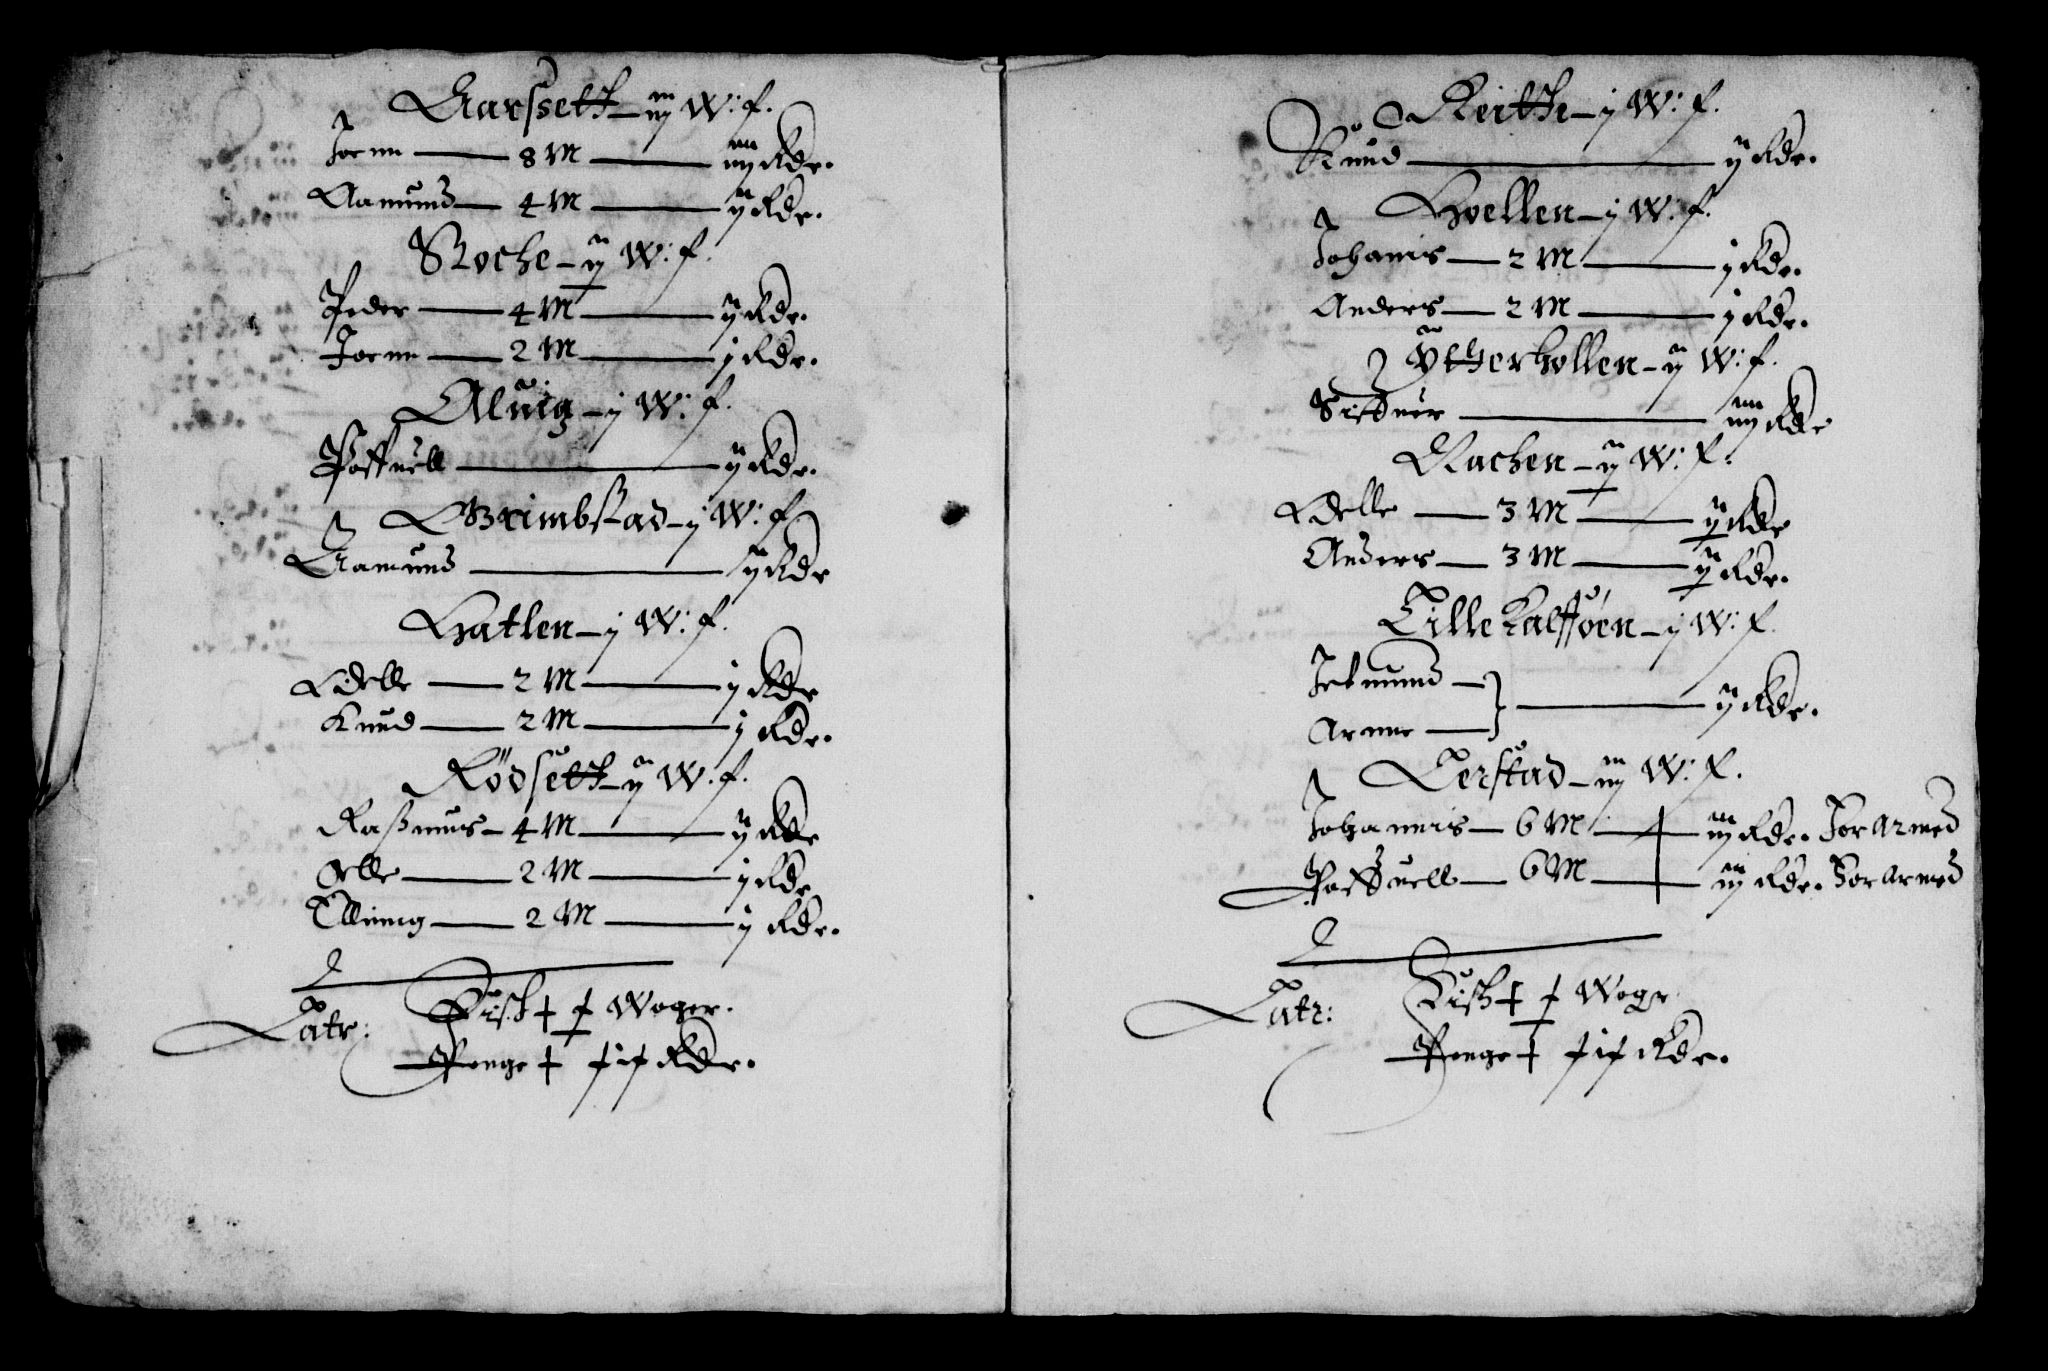 Aarssett – iij W: f.
Joenn — 8 M — iiij Rdr.
Aamund — 4 M — ij Rdr.
Noche – ij W: f.
Peder — 4 M — ij Rdr.
Joenn — 2 M — j Rdr.
Aluig – j W: f.
Poffuell — ij Rdr.
Grimbstad – j W: f.
Aamund — ij Rdr
Hatlen – j W: f.
Edelle — 2 M — j Rdr
Knud — 2 M — j Rdr.
Rödsett – ij W. f.
Raßmus – 4 M — ij Rdr
Olle — 2 M — j Rdr
Elling — 2 M — j Rdr.
Latr: Fisk + x Woger.
Penge + xix Rdr.
Reitthe – j W: f.
Knud — ij Rdr.
Hoellen – j W. f.
Johanis — 2 M — j Rdr.
Anders — 2 M — j Rdr.
Ytterhollen – ij W: f.
Siffuer — iiij Rdr
Aachen – ij W: f.
Edelle — 3 M — ij Rdr
Anders — 3 M — ij Rdr.
Lille Kalfføen – j W: f.
Jetmund —
Arnne — } — ij Rdr.
Lerstad – iij W: f.
Johannis — 6 M — iij Rdr. Forarmed
Poffuell — 6 M — iij Rdr. Forarmed
Latr: Fisk + x Wogr
Penge + xix Rdr.